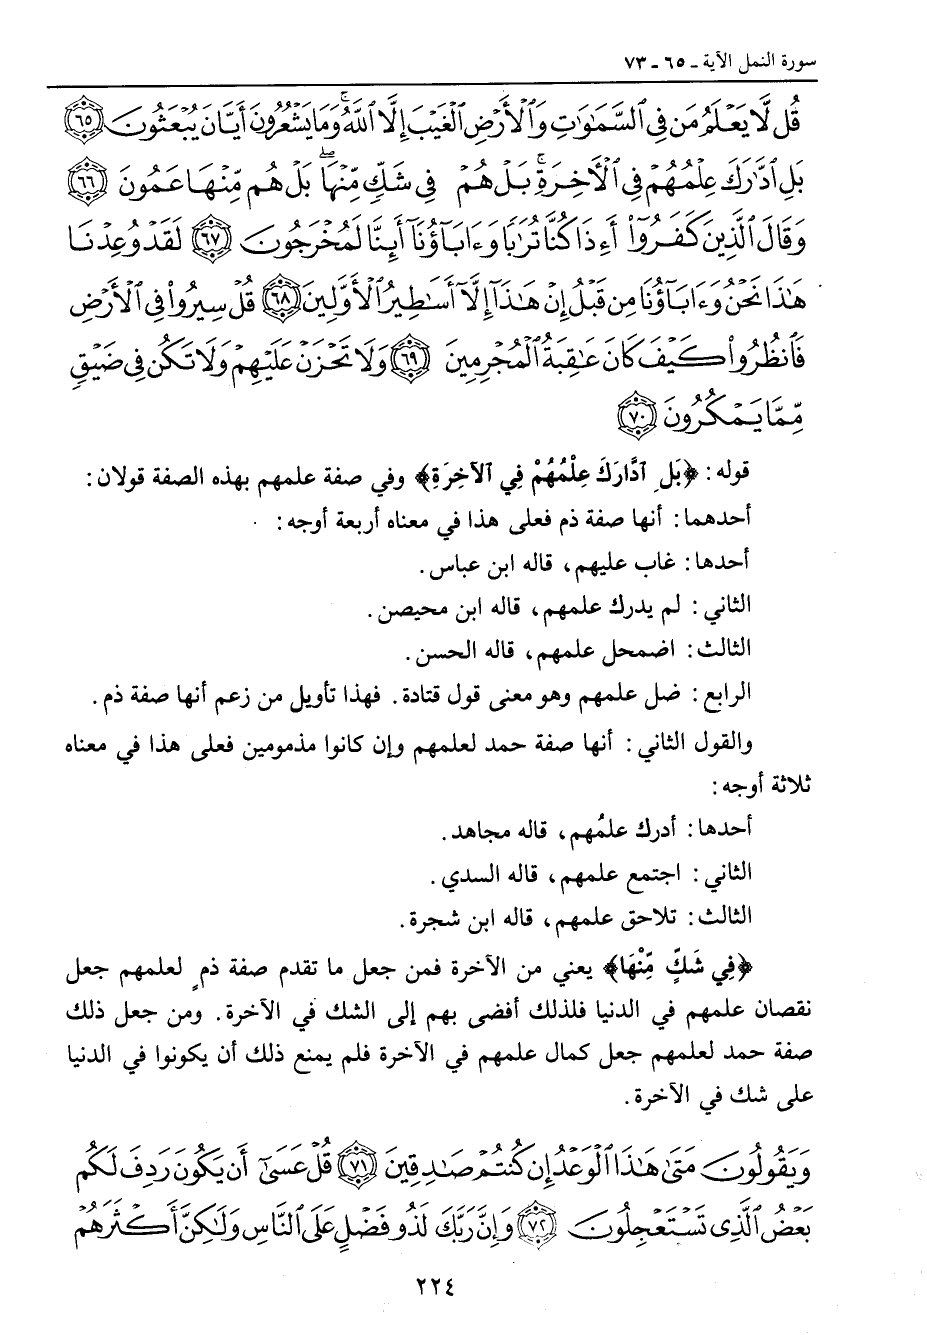 سورة النمل الآية ـ ٦٥ ـ ٧٣
قُل لَّا يَعْلَمُ مَن فِي السَّمَٰوَٰتِ وَالْأَرْضِ الْغَيْبَ إِلَّا اللَّهُ ۚ وَمَا يَشْعُرُونَ أَيَّانَ يُبْعَثُونَ ٦٥
بَلِ ادَّٰرَكَ عِلْمُهُمْ فِي الْآخِرَةِ ۚ بَلْ هُمْ فِي شَكٍّ مِّنْهَا ۖ بَلْ هُم مِّنْهَا عَمُونَ ٦٦
وَقَالَ الَّذِينَ كَفَرُوا أَءِذَا كُنَّا تُرَٰبًا وَءَابَآؤُنَآ أَئِنَّا لَمُخْرَجُونَ ٦٧ لَقَدْ وُعِدْنَا
هَٰذَا نَحْنُ وَءَابَآؤُنَا مِن قَبْلُ إِنْ هَٰذَآ إِلَّآ أَسَٰطِيرُ الْأَوَّلِينَ ٦٨ قُلْ سِيرُوا فِي الْأَرْضِ
فَانظُرُوا كَيْفَ كَانَ عَٰقِبَةُ الْمُجْرِمِينَ ٦٩ وَلَا تَحْزَنْ عَلَيْهِمْ وَلَا تَكُن فِي ضَيْقٍ
مِّمَّا يَمْكُرُونَ ٧٠
قوله: ﴿بَلِ ادَّارَكَ عِلْمُهُمْ فِي الآخِرَةِ﴾ وفي صفة علمهم بهذه الصفة قولان:
أحدهما: أنها صفة ذم فعلى هذا في معناه أربعة أوجه:
أحدها: غاب عليهم، قاله ابن عباس.
الثاني: لم يدرك علمهم، قاله ابن محيصن.
الثالث: اضمحل علمهم، قاله الحسن.
الرابع: ضل علمهم وهو معنى قول قتادة. فهذا تأويل من زعم أنها صفة ذم.
والقول الثاني: أنها صفة حمد لعلمهم وإن كانوا مذمومين فعلى هذا في معناه
ثلاثة أوجه:
أحدها: أدرك علمُهم، قاله مجاهد.
الثاني: اجتمع علمهم، قاله السدي.
الثالث: تلاحق علمهم، قاله ابن شجرة.
﴿فِي شَكٍّ مِّنْهَا﴾ يعني من الآخرة فمن جعل ما تقدم صفة ذمٍ لعلمهم جعل
نقصان علمهم في الدنيا فلذلك أفضى بهم إلى الشك في الآخرة. ومن جعل ذلك
صفة حمد لعلمهم جعل كمال علمهم في الآخرة فلم يمنع ذلك أن يكونوا في الدنيا
على شك في الآخرة.
وَيَقُولُونَ مَتَىٰ هَٰذَا الْوَعْدُ إِن كُنتُمْ صَٰدِقِينَ ٧١ قُلْ عَسَىٰٓ أَن يَكُونَ رَدِفَ لَكُم
بَعْضُ الَّذِي تَسْتَعْجِلُونَ ٧٢ وَإِنَّ رَبَّكَ لَذُو فَضْلٍ عَلَى النَّاسِ وَلَٰكِنَّ أَكْثَرَهُمْ
٢٢٤